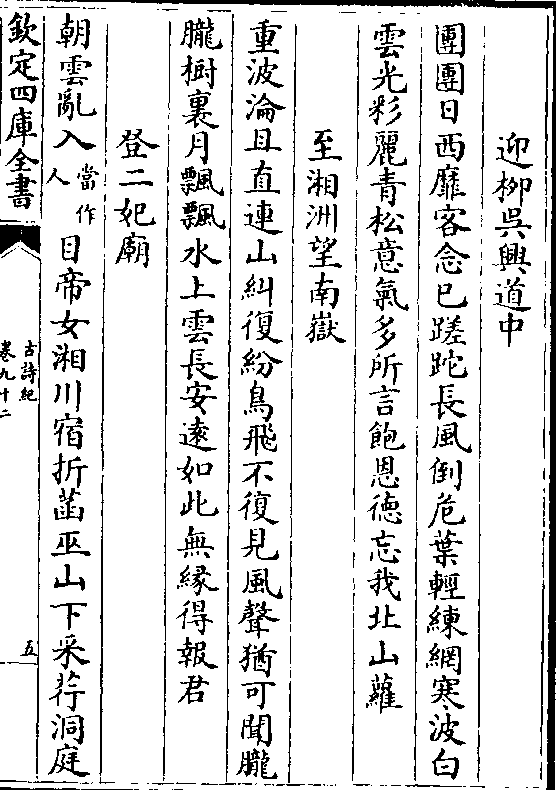 迎柳吳興道中
團團日西靡客念已蹉跎長風倒危葉輕練網寒波白
雲光彩麗青松意氣多所言飽恩德忘我北山蘿
至湘洲望南嶽
重波淪且直連山糾復紛鳥飛不復見風聲猶可聞朧
朧樹裏月飄飄水上雲長安遠如此無緣得報君
登二妃廟
朝雲亂入當作人目帝女湘川宿折菡巫山下采荇洞庭
欽定四庫全書
古詩紀
卷九十二
五